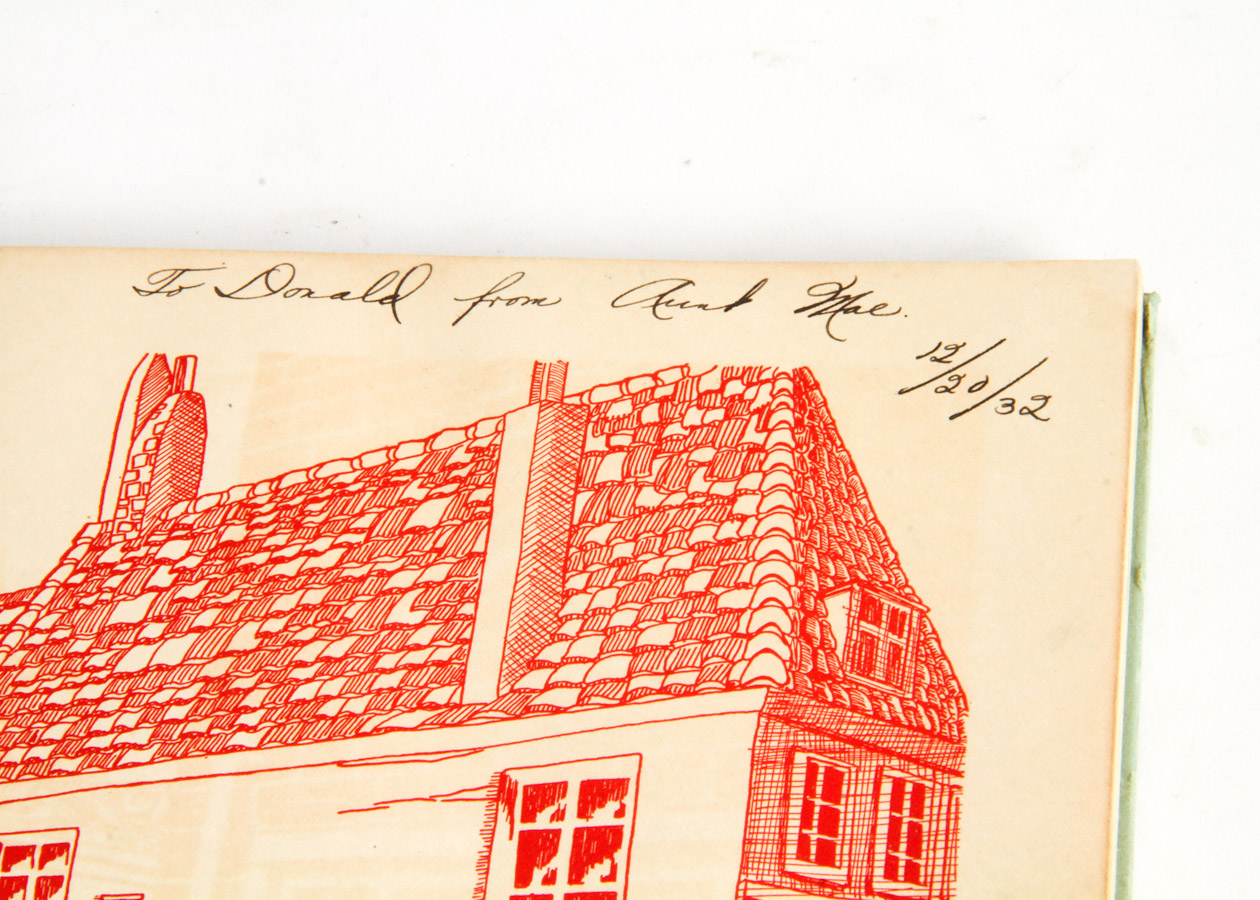 To Donald from Aunt Mae.
12/20/32